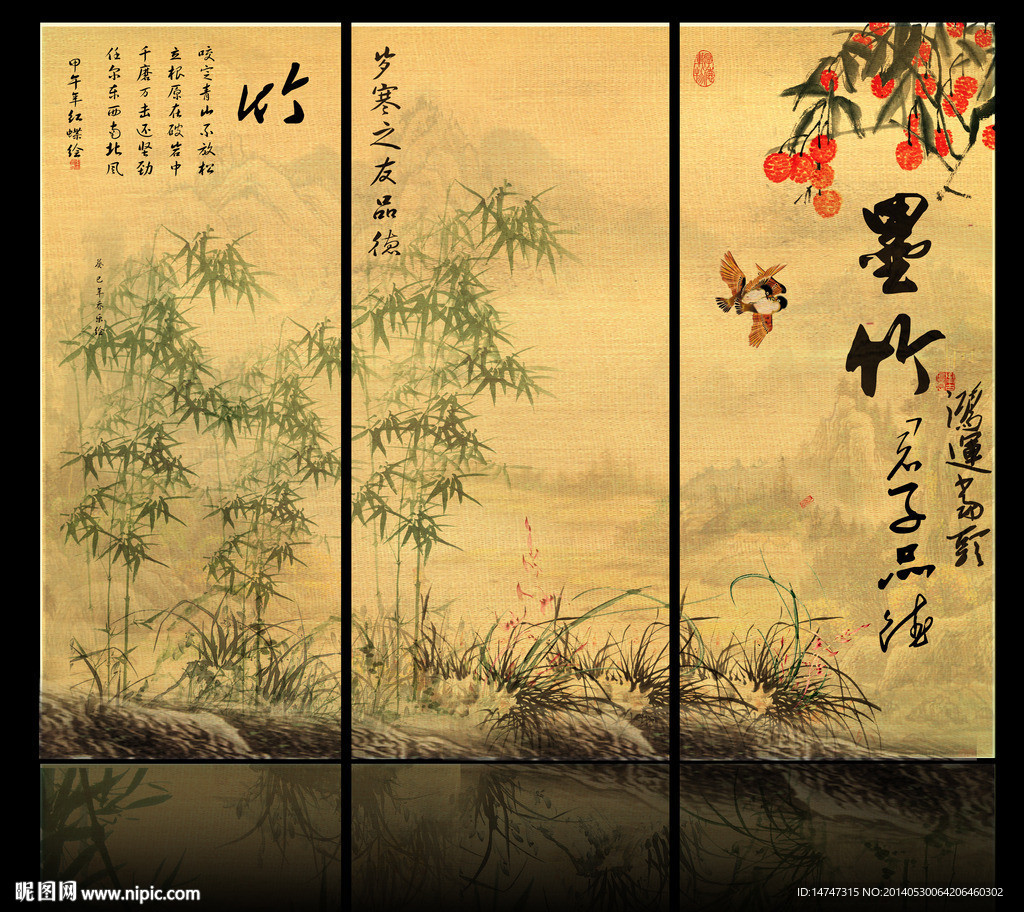 竹
咬定青山不放松
立根原在破岩中
千磨万击还坚劲
任尔东西南北风
甲午年红蝶绘
岁寒之友品德
墨竹
君子品德
鸿運當頭
昵图网 www.nipic.com
ID:14747315 NO:20140530064206460302